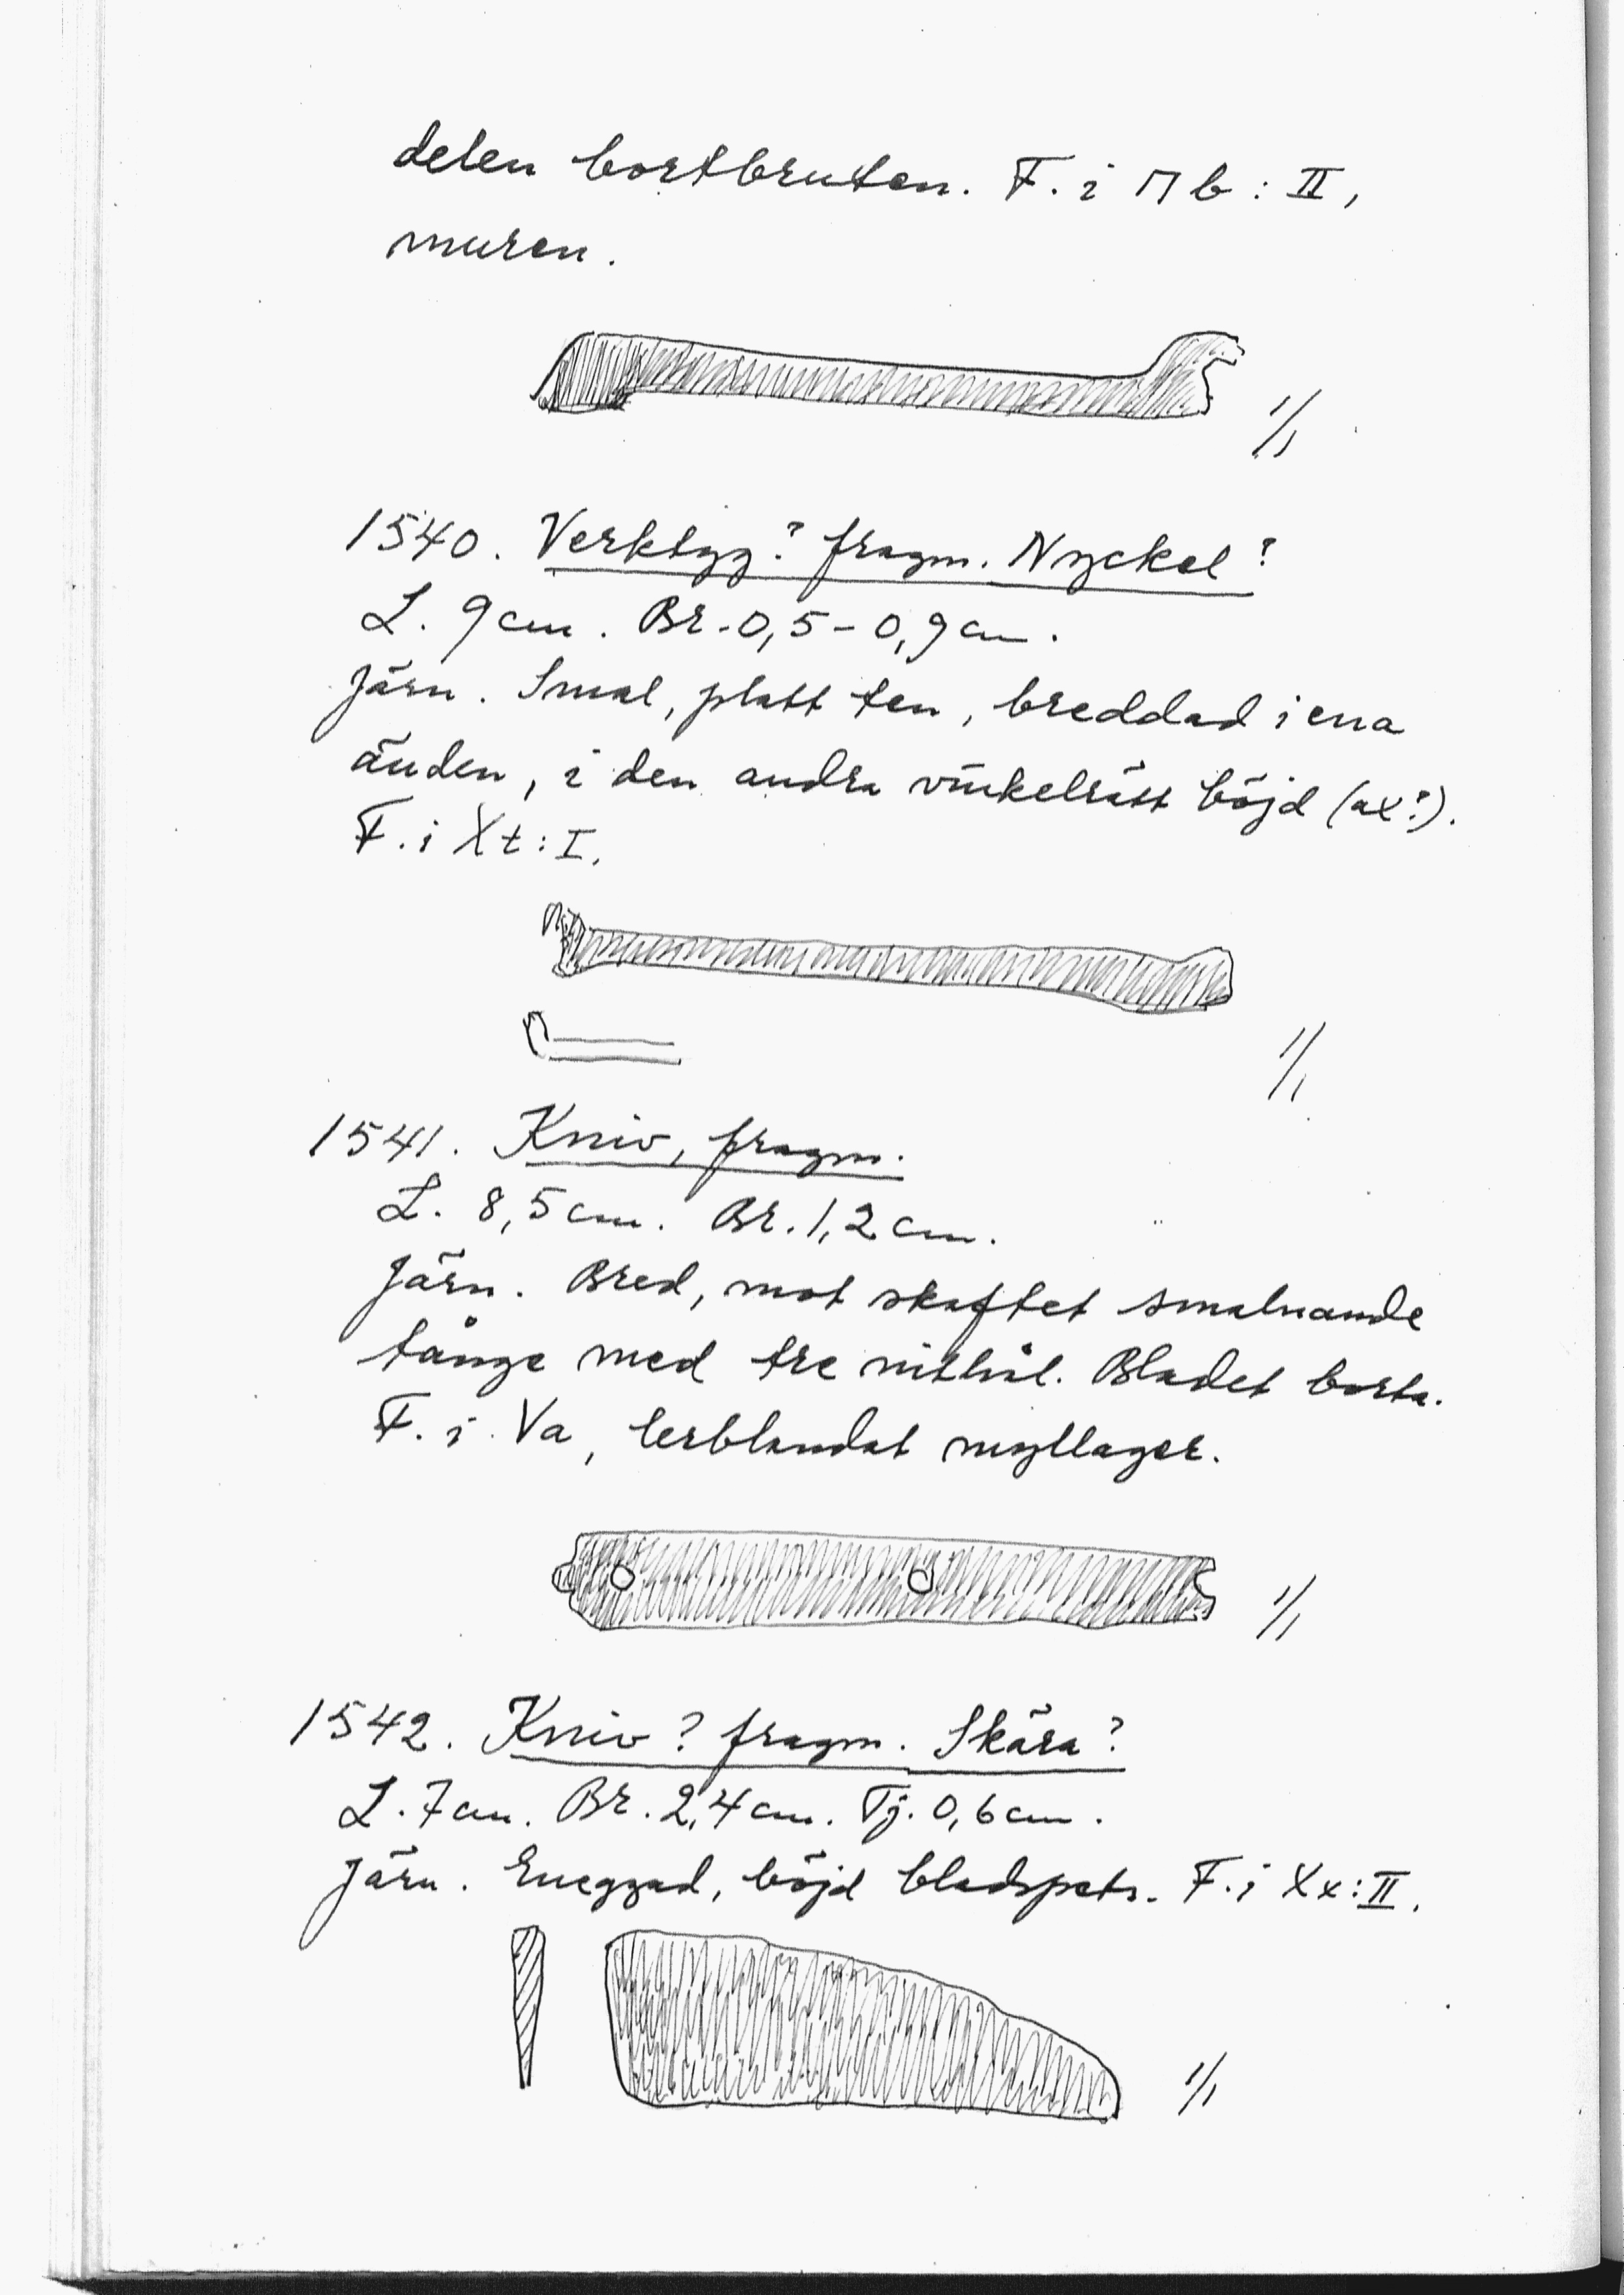 delen bortbruten. F. i ⊓ b : II,
muren.
1/1
1540. Verktyg? fragm. Nyckel?
L. 9 cm. Br. 0,5 - 0,9 cm.
Järn. Smal, platt ten, breddad i ena
änden, i den andra vinkelrätt böjd (ax?).
F. i Xt : I.
1/1
1541. Kniv, fragm.
L. 8,5 cm. Br. 1,2 cm.
Järn. Bred, mot skaftet smalnande
tånge med tre nithål. Bladet borta.
F. i Va, lerblandat myllager.
1/1
1542. Kniv? fragm. Skära?
L. 7 cm. Br. 2,4 cm. Tj. 0,6 cm.
Järn. Eneggad, böjd bladspets. F. i Xx : II.
1/1